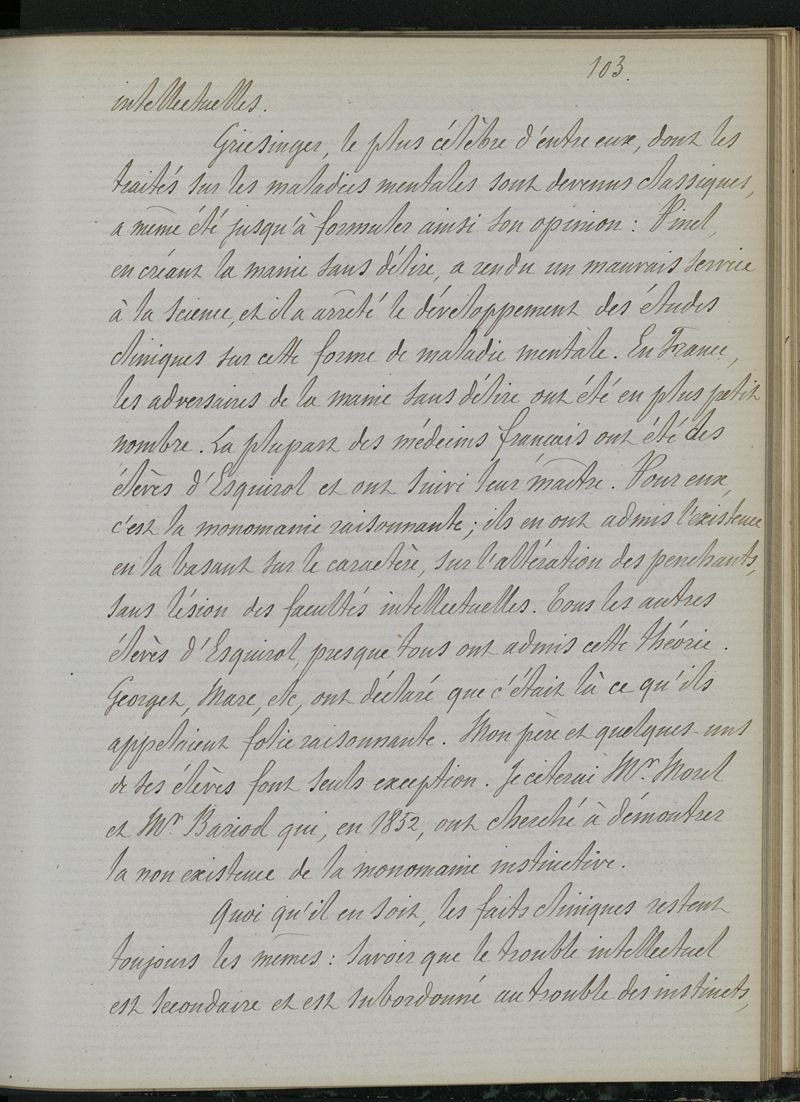 103.
intellectuelles.
Griesinger, le plus célèbre d'entre eux, dont les
traités sur les maladies mentales sont devenus classiques,
a même été jusqu'à formuler ainsi son opinion : Pinel,
en créant la manie sans délire, a rendu un mauvais service
à la science, et il a arrêté le développement des études
cliniques sur cette forme de maladie mentale. En France,
les adversaires de la manie sans délire ont été en plus petit
nombre. La plupart des médecins français ont été des
élèves d'Esquirol et ont suivi leur maître. Pour eux,
c'est la monomanie raisonnante ; ils en ont admis l'existence
en la basant sur le caractère, sur l'altération des penchants,
sans lésion des facultés intellectuelles. Tous les autres
élèves d'Esquirol, presque tous ont admis cette théorie.
Georget, Marc, etc, ont déclaré que c'était là ce qu'ils
appelaient folie raisonnante. Mon père et quelques-uns
de ses élèves font seuls exception. Je citerai Mr. Morel
et Mr Bariod qui, en 1852, ont cherché à démontrer
la non existence de la monomanie instinctive.
Quoi qu'il en soit, les faits cliniques restent
toujours les mêmes : savoir que le trouble intellectuel
est secondaire et est subordonné au trouble des instincts,